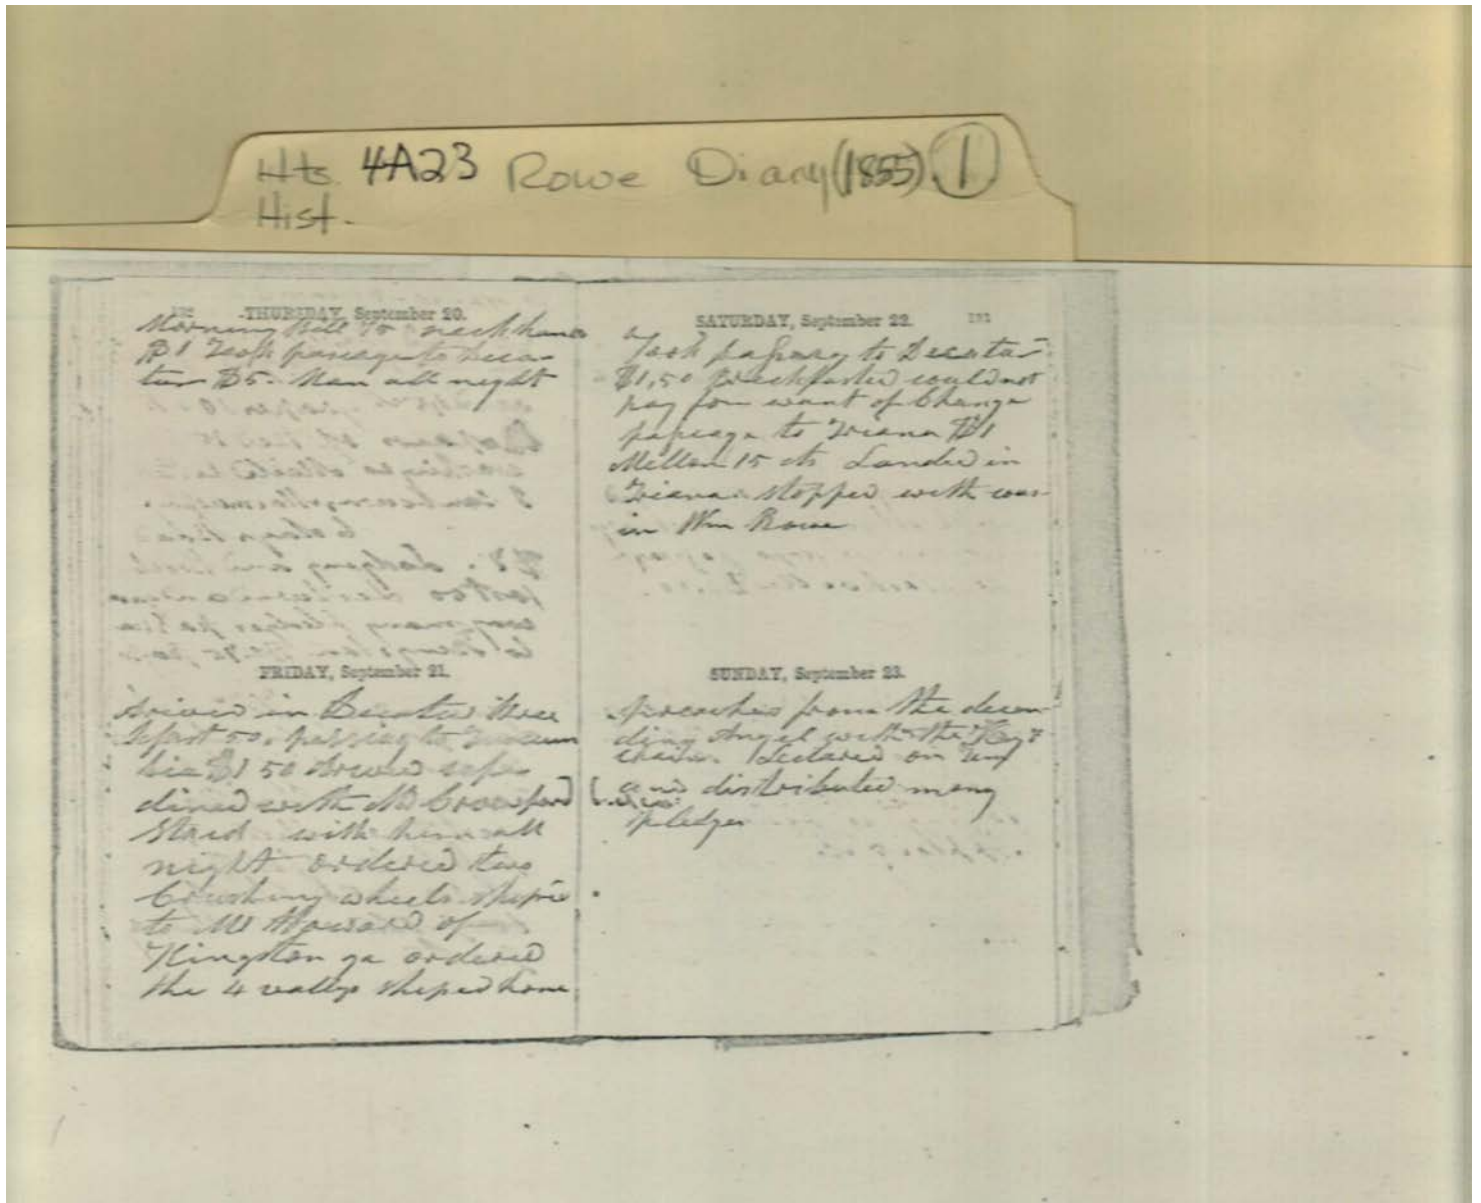 Hts. 4A23 Rowe Diary (1855) 1
Hist.
192 THURSDAY, September 20.
Morning bill 75
$1 Took passage to Deca-
tur $5. Ran all night
FRIDAY, September 21.
Arived in Decatur three
50. passing to
bia $1 50 Arived safe
dined with Mr Crawford
Staid with him all
night ordered two
Crushing wheels shiped
to Mr Howard of
Kingston ga ordered
the 4 shiped home
SATURDAY, September 22. 193
Took passage to Decatur
$1,50 Breckfasted could not
pay for want of Change
passage to Triana $1
Mellon 15 cts Landed in
Triana. stopped with cous-
in Wm Rowe
SUNDAY, September 23.
preached from the decen-
ding Angel with the Key &
chain. Lectured on
and distributed many
pledges